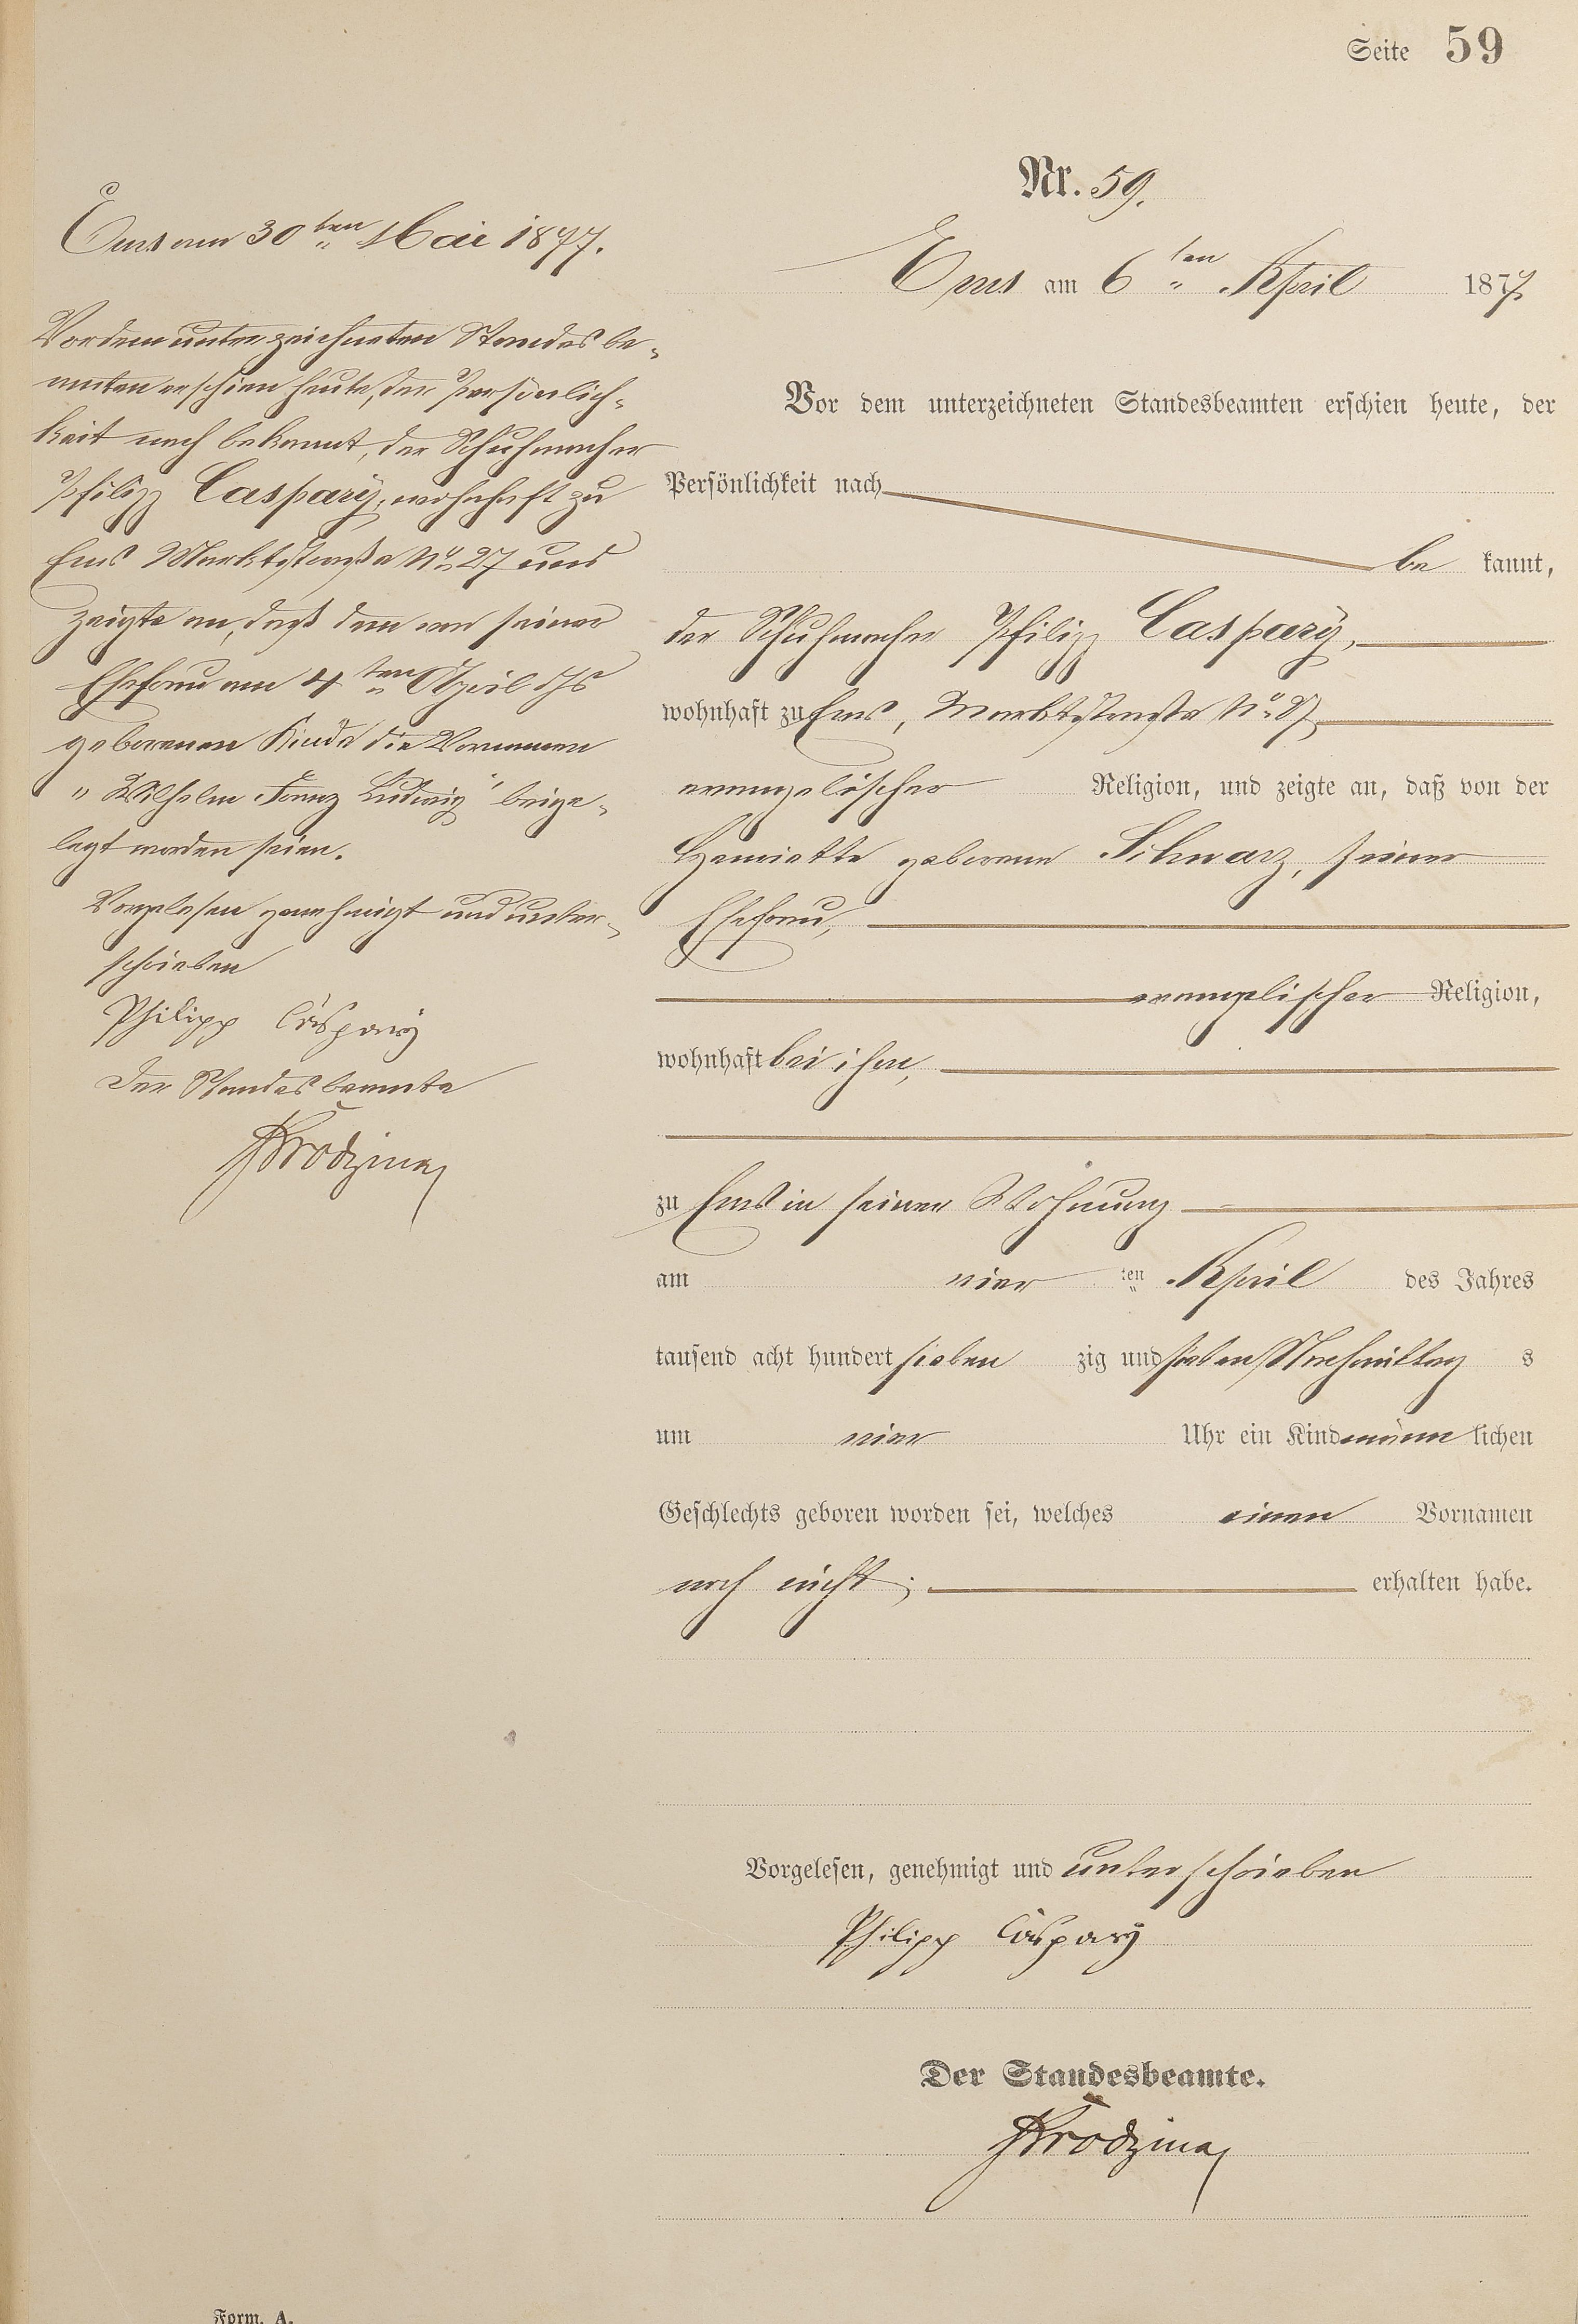 Seite 59
Nr. 59.
Ems am 6ten April 1877
Vor dem unterzeichneten Standesbeamten erschien heute, der
Persönlichkeit nach
be kannt,
der Schuhmacher Philipp Caspary,
wohnhaft zu Ems, Marktstraße No 27,
evangelischer Religion, und zeigte an, daß von der
Henriette geborenen Schwarz, seiner
Ehefrau,
evangelischer Religion,
wohnhaft bei ihm,
zu Ems in seiner Wohnung
am vier ten April des Jahres
tausend acht hundert sieben zig und sieben Nachmittag s
um vier Uhr ein Kind männ lichen
Geschlechts geboren worden sei, welches einen Vornamen
noch nicht, erhalten habe.
Vorgelesen, genehmigt und unterschrieben
Philipp Caspary
Der Standesbeamte.
Ems am 30ten Mai 1877.
Vor dem unterzeichneten Standesbe-
amten erschien heute, der Persönlich-
keit nach bekannt, der Schuhmacher
Philipp Caspary, wohnhaft zu
Ems Marktstraße No 27 und
zeigte an, daß dem von seiner
Ehefrau am 4ten April ds Js
geborenen Kinde die Vornamen
"Wilhelm Franz Ludwig" beige-
legt worden seien.
Vorgelesen genehmigt und unter-
schrieben
Philipp Caspary
Der Standesbeamte
Form. A.